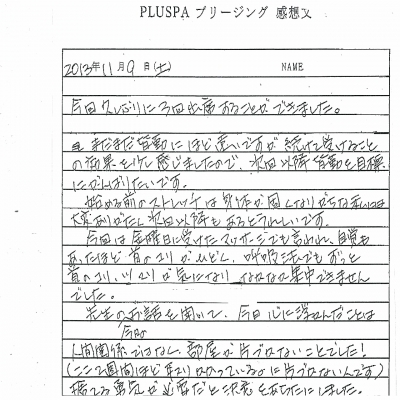 PLUSPA ブリージング 感想文
2013年11月9日(土) NAME
今回久しぶりに3回出席することができました。
まだまだ皆勤にほど遠いですが続けて受けること
の効果を少し感じましたので、次回以降皆勤を目標
にがんばりたいです。
始める前のストレッチは身体が固くなりがちな私には
大変ありがたく次回以降もあるとうれしいです。
今回は金曜日に受けたマッサージでも言われ、自覚も
あったほど首のコリがひどく、呼吸法でもずっと
首のコリ、ハリが気になり なかなか集中できません
でした。
先生のお話を聞いて、今日心に浮かんだことは
今の
人間関係ではなく、部屋が片づかないことでした!
(ここ2週間ほど取りかかっているのに片づかないんです)
捨てる勇気が必要だと決意をあらたにしました。